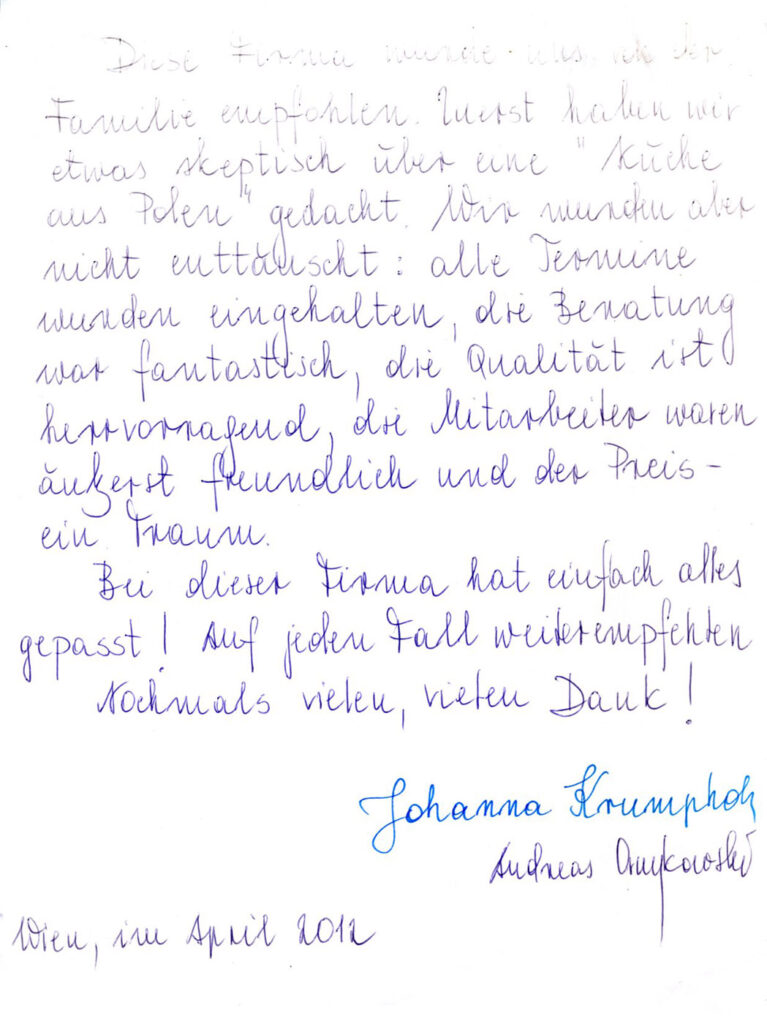 Diese Firma wurde uns von der
Familie empfohlen. Zuerst haben wir
etwas skeptisch über eine "Küche
aus Polen" gedacht. Wir wurden aber
nicht enttäuscht: alle Termine
wurden eingehalten, die Beratung
war fantastisch, die Qualität ist
herrvorragend, die Mitarbeiter waren
äußerst freundlich und der Preis -
ein Traum.
Bei dieser Firma hat einfach alles
gepasst! Auf jeden Fall weiterempfehlen
Nochmals vielen, vielen Dank!
Johanna Krumpholz
Andreas
Wien, im April 2012